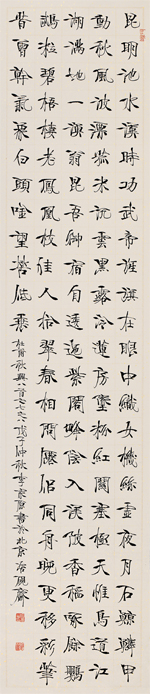 昆明池水漢時功武帝旌旗在眼中織女機絲虛夜月石鯨鱗甲
動秋風波漂菰米沉雲黑露冷蓮房墜粉紅關塞極天惟鳥道江
湖滿地一漁翁昆吾御宿自逶迤紫閣峰陰入渼陂香稻啄餘鸚
鵡粒碧梧棲老鳳凰枝佳人拾翠春相問仙侶同舟晚更移彩筆
昔曾幹氣象白頭吟望苦低垂
杜甫秋興八首之七之八戊子仲秋李書於北京硯齋